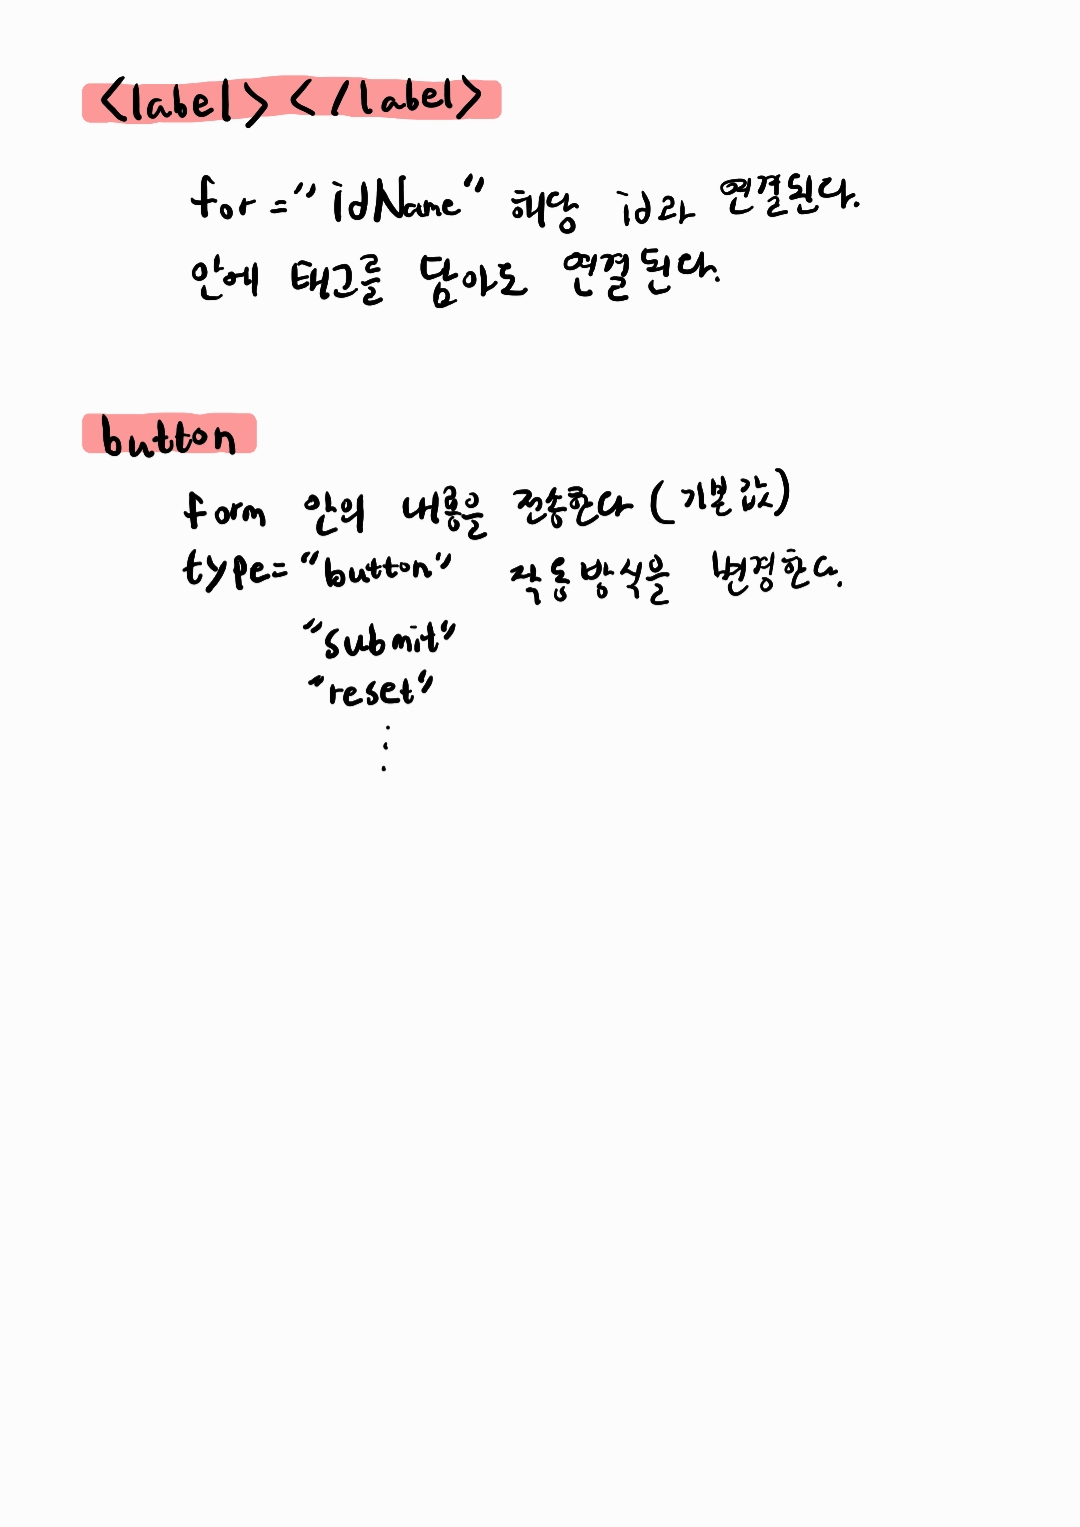 <label></label>
for="idName" 해당 id와 연결된다.
안에 태그를 담아도 연결된다.
button
form 안의 내용을 전송한다 (기본값)
type="button" 작동방식을 변경한다.
"submit"
"reset"
⋮